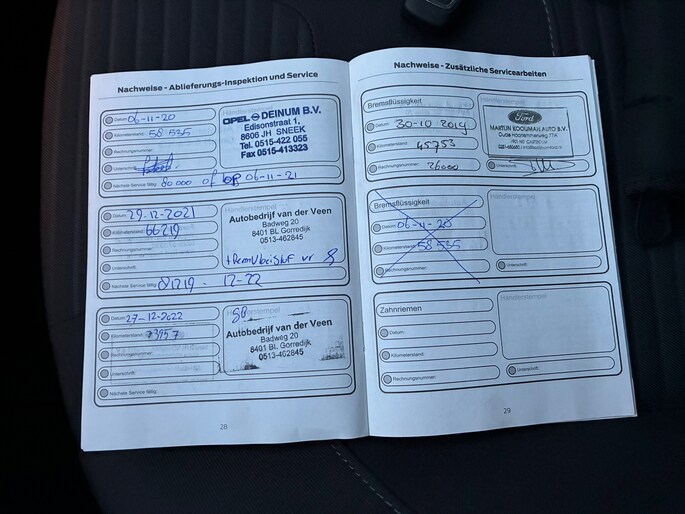 Nachweise - Ablieferungs-Inspektion und Service
Datum: 06-11-20
Kilometerstand: 58 535
Rechnungsnummer:
Unterschrift:
Nächste Service fällig: 80 000 of op 06-11-21
OPEL DEINUM B.V.
Edisonstraat 1,
8606 JH SNEEK
Tel. 0515-422 055
Fax 0515-413323
Datum: 29-12-2021
Kilometerstand: 66219
Rechnungsnummer:
Unterschrift:
Nächste Service fällig: 81219 - 12-22
Händlerstempel
Autobedrijf van der Veen
Badweg 20
8401 BL Gorredijk
0513-462845
Datum: 27-12-2022
Kilometerstand: 73957
Rechnungsnummer:
Unterschrift:
Nächste Service fällig:
Autobedrijf van der Veen
Badweg 20
8401 BL Gorredijk
0513-462845
28
Nachweise - Zusätzliche Servicearbeiten
Bremsflüssigkeit
Datum: 30-10-2019
Kilometerstand: 45753
Rechnungsnummer: 26000
Händlerstempel
Ford
MARTIJN KOOIJMAN AUTO B.V.
Unterschrift:
Bremsflüssigkeit
Datum: 06-11-20
Kilometerstand: 58 535
Rechnungsnummer:
Händlerstempel
Unterschrift:
Zahnriemen
Datum:
Kilometerstand:
Rechnungsnummer:
Händlerstempel
Unterschrift:
29